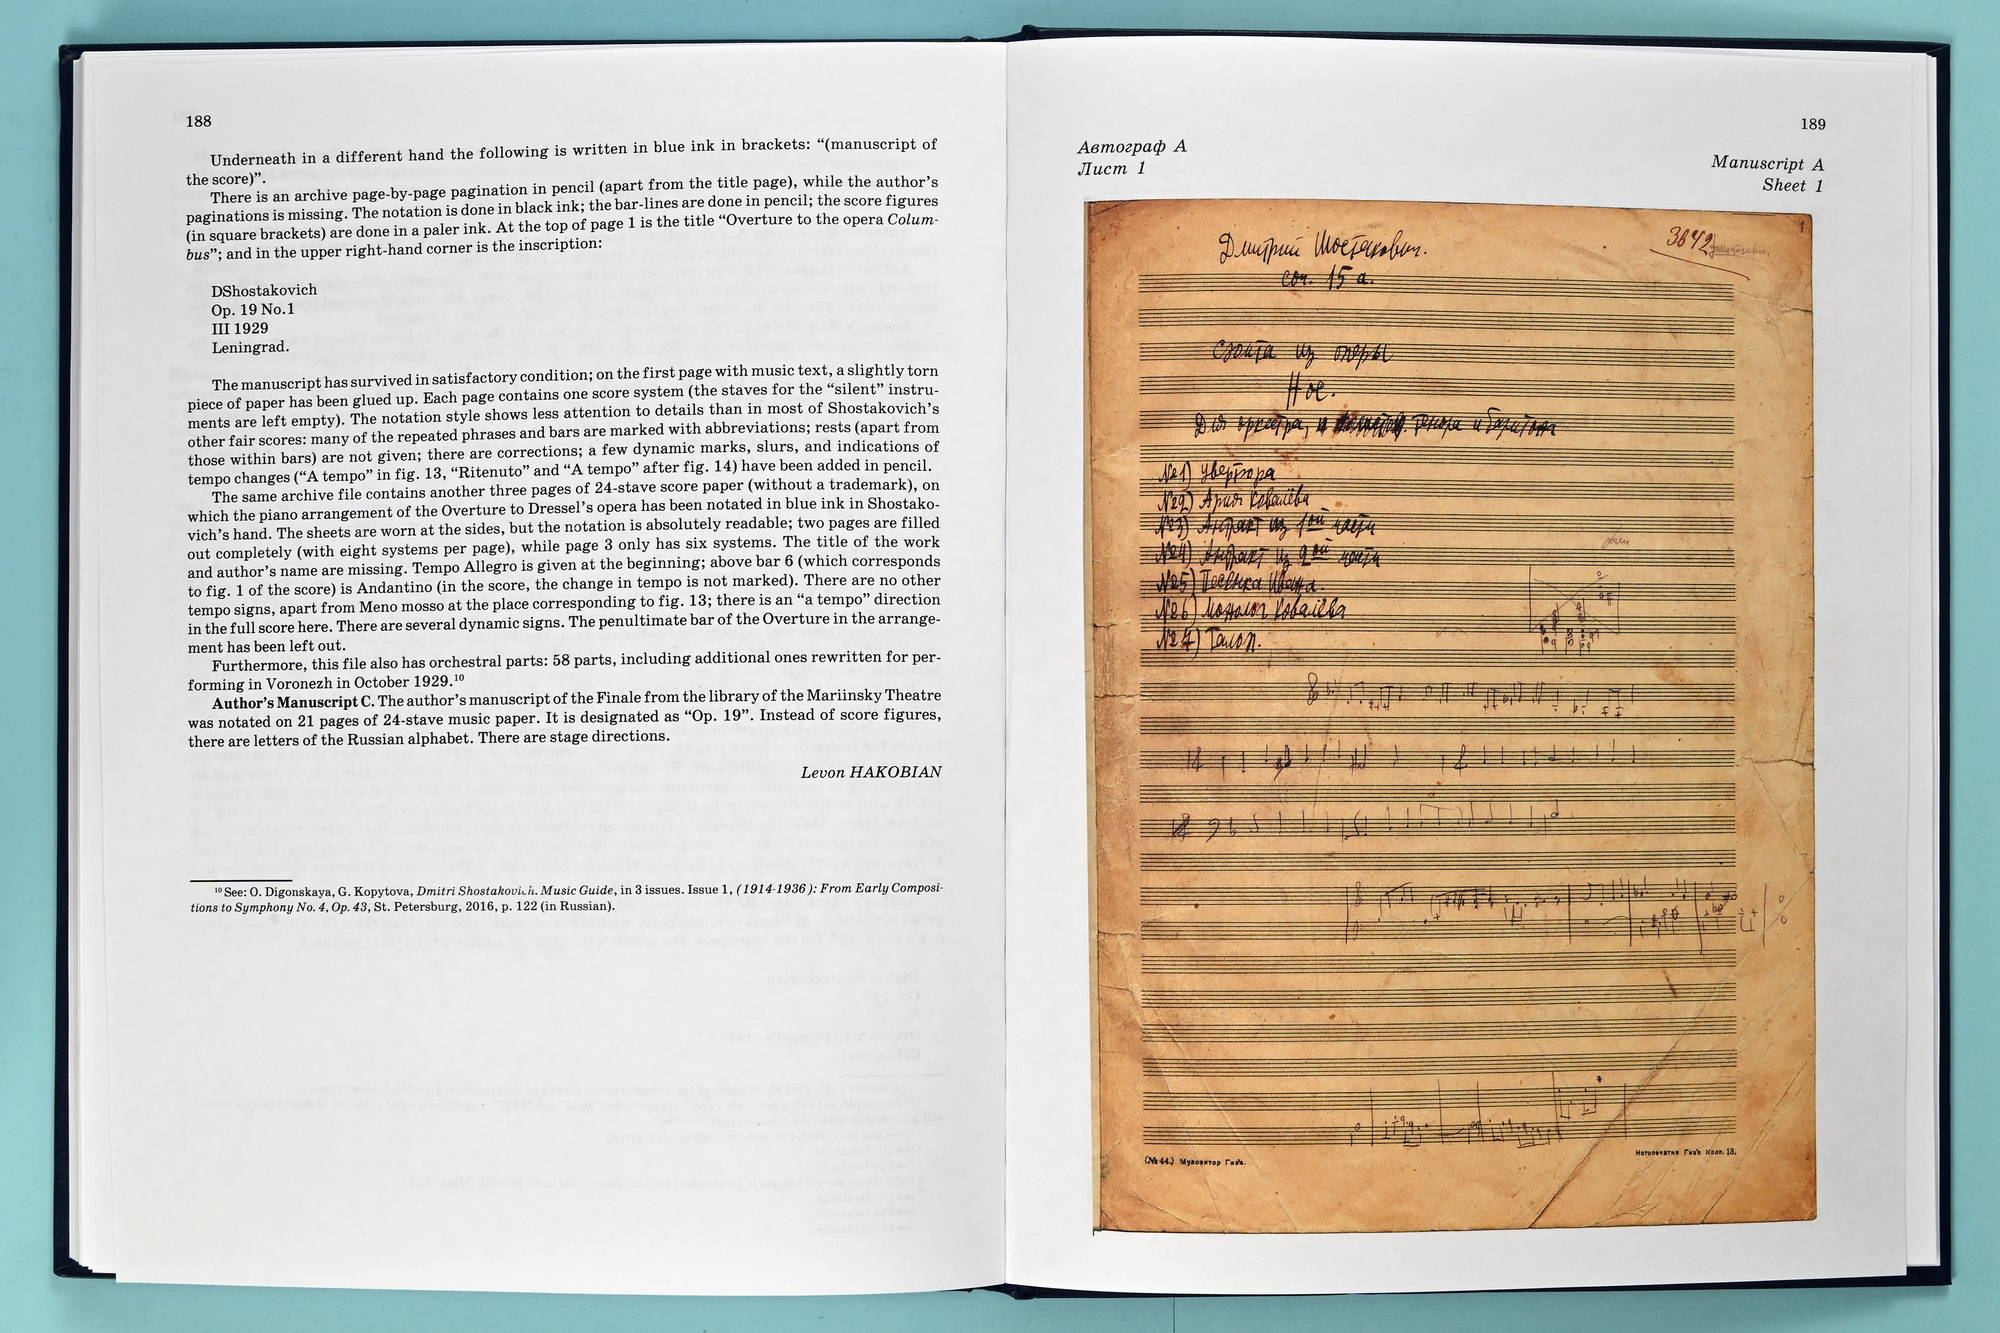 188
Underneath in a different hand the following is written in blue ink in brackets: “(manuscript of
the score)”.
There is an archive page-by-page pagination in pencil (apart from the title page), while the author’s
paginations is missing. The notation is done in black ink; the bar-lines are done in pencil; the score figures
(in square brackets) are done in a paler ink. At the top of page 1 is the title “Overture to the opera Colum-
bus”; and in the upper right-hand corner is the inscription:
DShostakovich
Op. 19 No.1
III 1929
Leningrad.
The manuscript has survived in satisfactory condition; on the first page with music text, a slightly torn
piece of paper has been glued up. Each page contains one score system (the staves for the “silent” instru-
ments are left empty). The notation style shows less attention to details than in most of Shostakovich’s
other fair scores: many of the repeated phrases and bars are marked with abbreviations; rests (apart from
those within bars) are not given; there are corrections; a few dynamic marks, slurs, and indications of
tempo changes (“A tempo” in fig. 13, “Ritenuto” and “A tempo” after fig. 14) have been added in pencil.
The same archive file contains another three pages of 24-stave score paper (without a trademark), on
which the piano arrangement of the Overture to Dressel’s opera has been notated in blue ink in Shostako-
vich’s hand. The sheets are worn at the sides, but the notation is absolutely readable; two pages are filled
out completely (with eight systems per page), while page 3 only has six systems. The title of the work
and author’s name are missing. Tempo Allegro is given at the beginning; above bar 6 (which corresponds
to fig. 1 of the score) is Andantino (in the score, the change in tempo is not marked). There are no other
tempo signs, apart from Meno mosso at the place corresponding to fig. 13; there is an “a tempo” direction
in the full score here. There are several dynamic signs. The penultimate bar of the Overture in the arrange-
ment has been left out.
Furthermore, this file also has orchestral parts: 58 parts, including additional ones rewritten for per-
forming in Voronezh in October 1929.¹⁰
Author’s Manuscript C. The author’s manuscript of the Finale from the library of the Mariinsky Theatre
was notated on 21 pages of 24-stave music paper. It is designated as “Op. 19”. Instead of score figures,
there are letters of the Russian alphabet. There are stage directions.
Levon HAKOBIAN
¹⁰ See: O. Digonskaya, G. Kopytova, Dmitri Shostakovich. Music Guide, in 3 issues. Issue 1, (1914-1936): From Early Composi-
tions to Symphony No. 4, Op. 43, St. Petersburg, 2016, p. 122 (in Russian).
189
Автограф А
Лист 1
Manuscript A
Sheet 1
1
3842
Дмитрий Шостакович.
соч. 15 а.
Сюита из оперы
Нос.
Для оркестра, тенора и баритона
№1) Увертюра
№2) Ария Ковалёва
№3) Антракт из 1ой части
№4) Антракт из 2ой части
№5) Песенка Ивана.
№6) Монолог Ковалёва
№7) Галоп.
(№ 44.) Музсектор Гиз'а.
Нотопечатня Гиз'а Колп. 13.